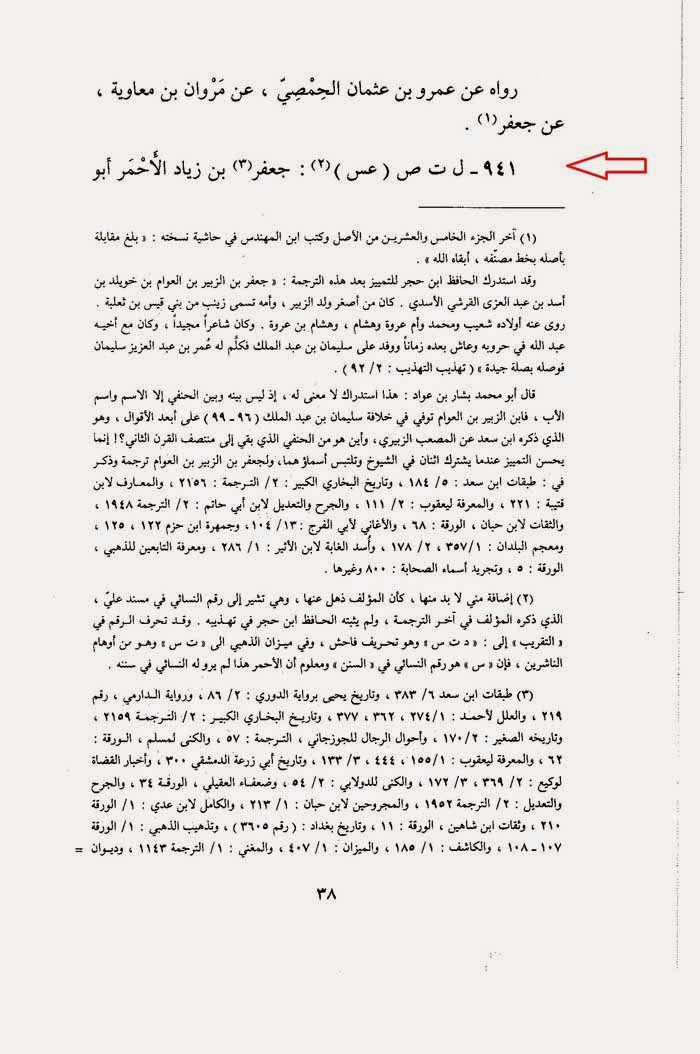 رواه عن عمرو بن عثمان الحِمْصِيّ ، عن مَرْوان بن معاوية ،
عن جعفر(١) .
٩٤١ ـ ل ت ص ( عس )(٢) : جعفر(٣) بن زياد الأَحْمَر أبو
(١) آخر الجزء الخامس والعشرين من الأصل وكتب ابن المهندس في حاشية نسخته : « بلغ مقابلة
بأصله بخط مصنّفه ، أبقاه الله » .
وقد استدرك الحافظ ابن حجر للتمييز بعد هذه الترجمة : « جعفر بن الزبير بن العوام بن خويلد بن
أسد بن عبد العزى القرشي الأسدي . كان من أصغر ولد الزبير ، وأمه تسمى زينب من بني قيس بن ثعلبة .
روى عنه أولاده شعيب ومحمد وأم عروة وهشام ، وهشام بن عروة . وكان شاعراً مجيداً ، وكان مع أخيه
عبد الله في حروبه وعاش بعده زماناً ووفد على سليمان بن عبد الملك فكلَّم له عُمر بن عبد العزيز سليمان
فوصله بصلة جيدة » ( تهذيب التهذيب : ٢/ ٩٢ ) .
قال أبو محمد بشار بن عواد : هذا استدراك لا معنى له ، إذ ليس بينه وبين الحنفي إلا الاسم واسم
الأب ، فابن الزبير بن العوام توفي في خلافة سليمان بن عبد الملك ( ٩٦ ـ ٩٩ ) على أبعد الأقوال ، وهو
الذي ذكره ابن سعد عن المصعب الزبيري، وأين هو من الحنفي الذي بقي إلى منتصف القرن الثاني؟! إنما
يحسن التمييز عندما يشترك اثنان في الشيوخ وتلتبس أسماؤ هما، ولجعفر بن الزبير بن العوام ترجمة وذكر
في : طبقات ابن سعد : ٥/ ١٨٤ ، وتاريخ البخاري الكبير : ٢/ الترجمة : ٢١٥٦ ، والمعارف لابن
قتيبة : ٢٢١ ، والمعرفة ليعقوب : ٢/ ١١١ ، والجرح والتعديل لابن أبي حاتم : ٢/ الترجمة ١٩٤٨ ،
والثقات لابن حبان ، الورقة : ٦٨ ، والأغاني لأبي الفرج : ١٣/ ١٠٤، وجمهرة ابن حزم ١٢٢ ، ١٢٥ ،
ومعجم البلدان : ١/ ٣٥٧ ، ٢/ ١٧٨ ، وأُسد الغابة لابن الأثير : ١/ ٢٨٦ ، ومعرفة التابعين للذهبي ،
الورقة : ٥ ، وتجريد أسماء الصحابة : ٨٠٠ وغيرها .
(٢) إضافة مني لا بد منها ، كأن المؤلف ذهل عنها ، وهي تشير إلى رقم النسائي في مسند عليّ ،
الذي ذكره المؤلف في آخر الترجمة ، ولم يثبته الحافظ ابن حجر في تهذيبه . وقد تحرف الرقم في
« التقريب » إلى : « د ت س » وهو تحريف فاحش ، وفي ميزان الذهبي الى « ت س » وهو من أوهام
الناشرين ، فإن « س » هو رقم النسائي في « السنن » ومعلوم أن الأحمر هذا لم يرو له النسائي في سننه .
(٣) طبقات ابن سعد ٦/ ٣٨٣ ، وتاريخ يحيى برواية الدوري : ٢/ ٨٦ ، ورواية الدارمي ، رقم
٢١٩ ، والعلل لأحمد : ١/ ٢٧٤ ، ٣٦٢ ، ٣٧٧ ، وتاريخ البخاري الكبير : ٢/ الترجمة ٢١٥٩ ،
وتاريخه الصغير : ٢/ ١٧٠ ، وأحوال الرجال للجوزجاني ، الترجمة : ٥٧ ، والكنى لمسلم ، الورقة :
٦٢ ، والمعرفة ليعقوب : ١/ ١٥٥ ، ٤٤٤ ، ٣/ ١٣٣ ، وتاريخ أبي زرعة الدمشقي ٣٠٠ ، وأخبار القضاة
لوكيع : ٢/ ٣٦٩ ، ٣/ ١٧٢ ، والكنى للدولابي : ٢/ ٥٤ ، وضعفاء العقيلي ، الورقة ٣٤ ، والجرح
والتعديل : ٢/ الترجمة ١٩٥٢ ، والمجروحين لابن حبان : ١/ ٢١٣ ، والكامل لابن عدي : ١/ الورقة
٢١٠ ، وثقات ابن شاهين ، الورقة : ١١ ، وتاريخ بغداد : ( رقم ٣٦٠٥ ) ، وتذهيب الذهبي : ١/ الورقة
١٠٧ ـ ١٠٨ ، والكاشف : ١/ ١٨٥ ، والميزان : ١/ ٤٠٧ ، والمغني : ١/ الترجمة ١١٤٣ ، وديوان =
٣٨